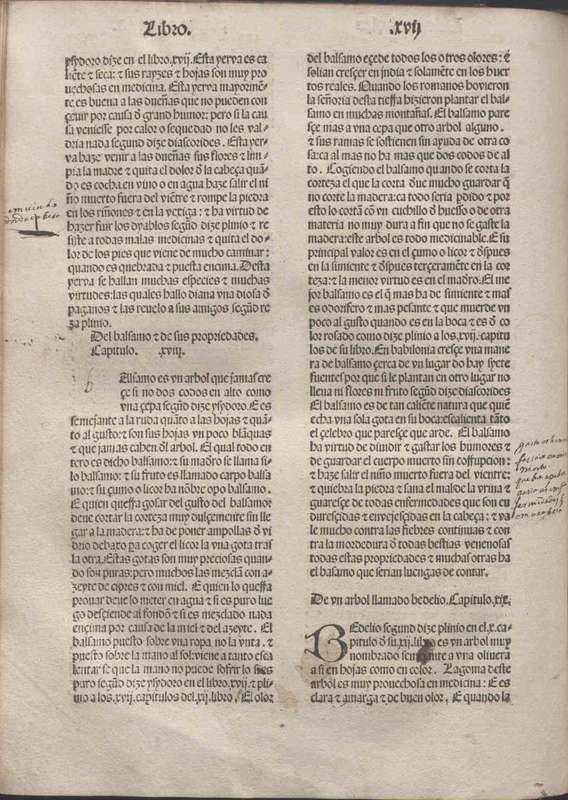 Libro. .xvij
ysydoro dize en el libro.xvij. Esta yerva es ca
liẽte ⁊ seca: ⁊ sus rayzes ⁊ hojas son muy pro
uechosas en medicina. Esta yerva mayormẽ-
te es buena a las dueñas que no pueden con
çeuir por causa đ grand humor: pero si la cau
sa veniesse por calor o sequedad no les val-
dria nada segund dize diascorides. Esta yer-
va haze venir a las dueñas sus flores ⁊ lim-
pia la madre ⁊ quita el dolor đ la cabeça quã-
do es cocha en vino o en agua haze salir el ni
ño muerto fuera del viẽtre ⁊ rompe la piedra
en los riñones ⁊ en la vexiga: ⁊ ha virtud de
hazer fuir los dyablos segũd dize plinio ⁊ re
siste a todas malas medicinas ⁊ quita el do-
lor de los pies que viene de mucho caminar:
quando es quebrada ⁊ puesta encina. Desta
yerva se hallan muchas especies ⁊ muchas
virtudes: las quales hallo diana vna diosa đ
paganos ⁊ las reuelo a sus amigos segũd re
za plinio.
Del balsamo ⁊ de sus propriedades.
Capitulo. .xviij.
b
Elsamo es vn arbol que jamas cre
çe si no dos codos en alto como
vna çepa segũd dize ysydoro. E es
semejante a la ruda quãto a las hojas ⁊ quã-
to al gusto: ⁊ son sus hojas vn poco blãquas
⁊ que jamas cahen đl arbol. El qual todo en
tero es dicho balsamo: ⁊ su madro se llama si-
lo balsamo: ⁊ su fruto es llamado carpo balsa
mo: ⁊ su çumo o licor ha nõbre opo balsamo.
E quien queſſa gosar del gusto del balsamor
deue cortar la corteza muy dulçemente sin lle
gar a la madera: ⁊ ha de poner ampollas đ vi
drio debaxo pa coger el licor la vna gota tras
la otra. Estas gotas son muy preciosas quan-
do son puras: pero muchos las mezclã con a-
zeyte de cipres ⁊ con miel. E quien lo queſſa
prouar deue lo meter en agua ⁊ si es puro lue
go desçiende al fondõ ⁊ si es mezclado nada
ençima por causa de la miel ⁊ del azeyte. El
balsamo puesto sobre vna ropa no la vnta. ⁊
puesto sobre la mano al sol: viene a tanto esca
lentar se que la mano no puede sofrir lo si es
puro segũd dize ysydoro en el libro.xvij. ⁊ pli-
nio a los.xvij. capitulos del.xij. libro. El olor
del balsamo eçede todos los otros olores: ⁊
solian cresçer en jndia ⁊ solamẽte en los huer
tos reales. Quando los romanos hovieron
la señoria desta tieſſa hizieron plantar el bal-
samo en muchas montañas. El balsamo pare
sçe mas a vna cepa que otro arbol alguno.
⁊ sus ramas se sostienen sin ayuda de otra co
sa: ca al mas no ha mas que dos codos de al
to. Cogiendo el balsamo quando se corta la
corteza el que la corta đue mucho guardar q̃
no corte la madera: ca todo seria pdido ⁊ por
esto lo cortã cõ vn cuchillo đ huesso o de otra
materia no muy dura a fin que no se gaste la
madera: este arbol es todo medicinable. E su
principal valor es en el çumo o licor ⁊ đspues
en la simiente ⁊ đspues terçeramẽte en la cor
teza: ⁊ la menor virtud es en el madro. El me
jor balsamo es el q̃ mas ha de simiente ⁊ mas
es odorifero ⁊ mas pesante ⁊ que muerde vn
poco al gusto quando es en la boca ⁊ es đ co
lor rosado como dize plinio a los.xvij. capitu
los de su libro. En babilonia cresçe vna mane
ra de balsamo çerca de vn lugar do hay syete
fuentes por que si le plantan en otro lugar no
lleua ni flores ni fruto segũd dize diascorides
El balsamo es de tan caliẽte natura que quiẽ
echa vna sola gota en su boca: escalienta tãto
el çelebro que paresçe que arde. El balsamo
ha virtud de diuidir ⁊ gastar los humores ⁊
de guardar el cuerpo muerto sin coſſupcion:
⁊ haze salir el niño muerto fuera del vientre:
⁊ quiebra la piedra ⁊ sana el mal de la vrina ⁊
guaresçe de todas enfermedades que son en
duresçidas ⁊ envejesçidas en la cabeça: ⁊ va
le mucho contra las fiebres continuas ⁊ con
tra la mordedura đ todas bestias venenosas
todas estas propriedades ⁊ muchas otras ha
el balsamo que serian luengas de contar.
De vn arbol llamado bedelio. Capitulo.xix.
BEdelio segund dize plinio en el.x. ca
pitulo đ su.xij. libro es vn arbol muy
nombrado semejante a vna oliuera
a si en hojas como en color. La goma deste
arbol es muy prouechosa en medicina: E es
clara ⁊ amarga ⁊ de buen olor. E quando la